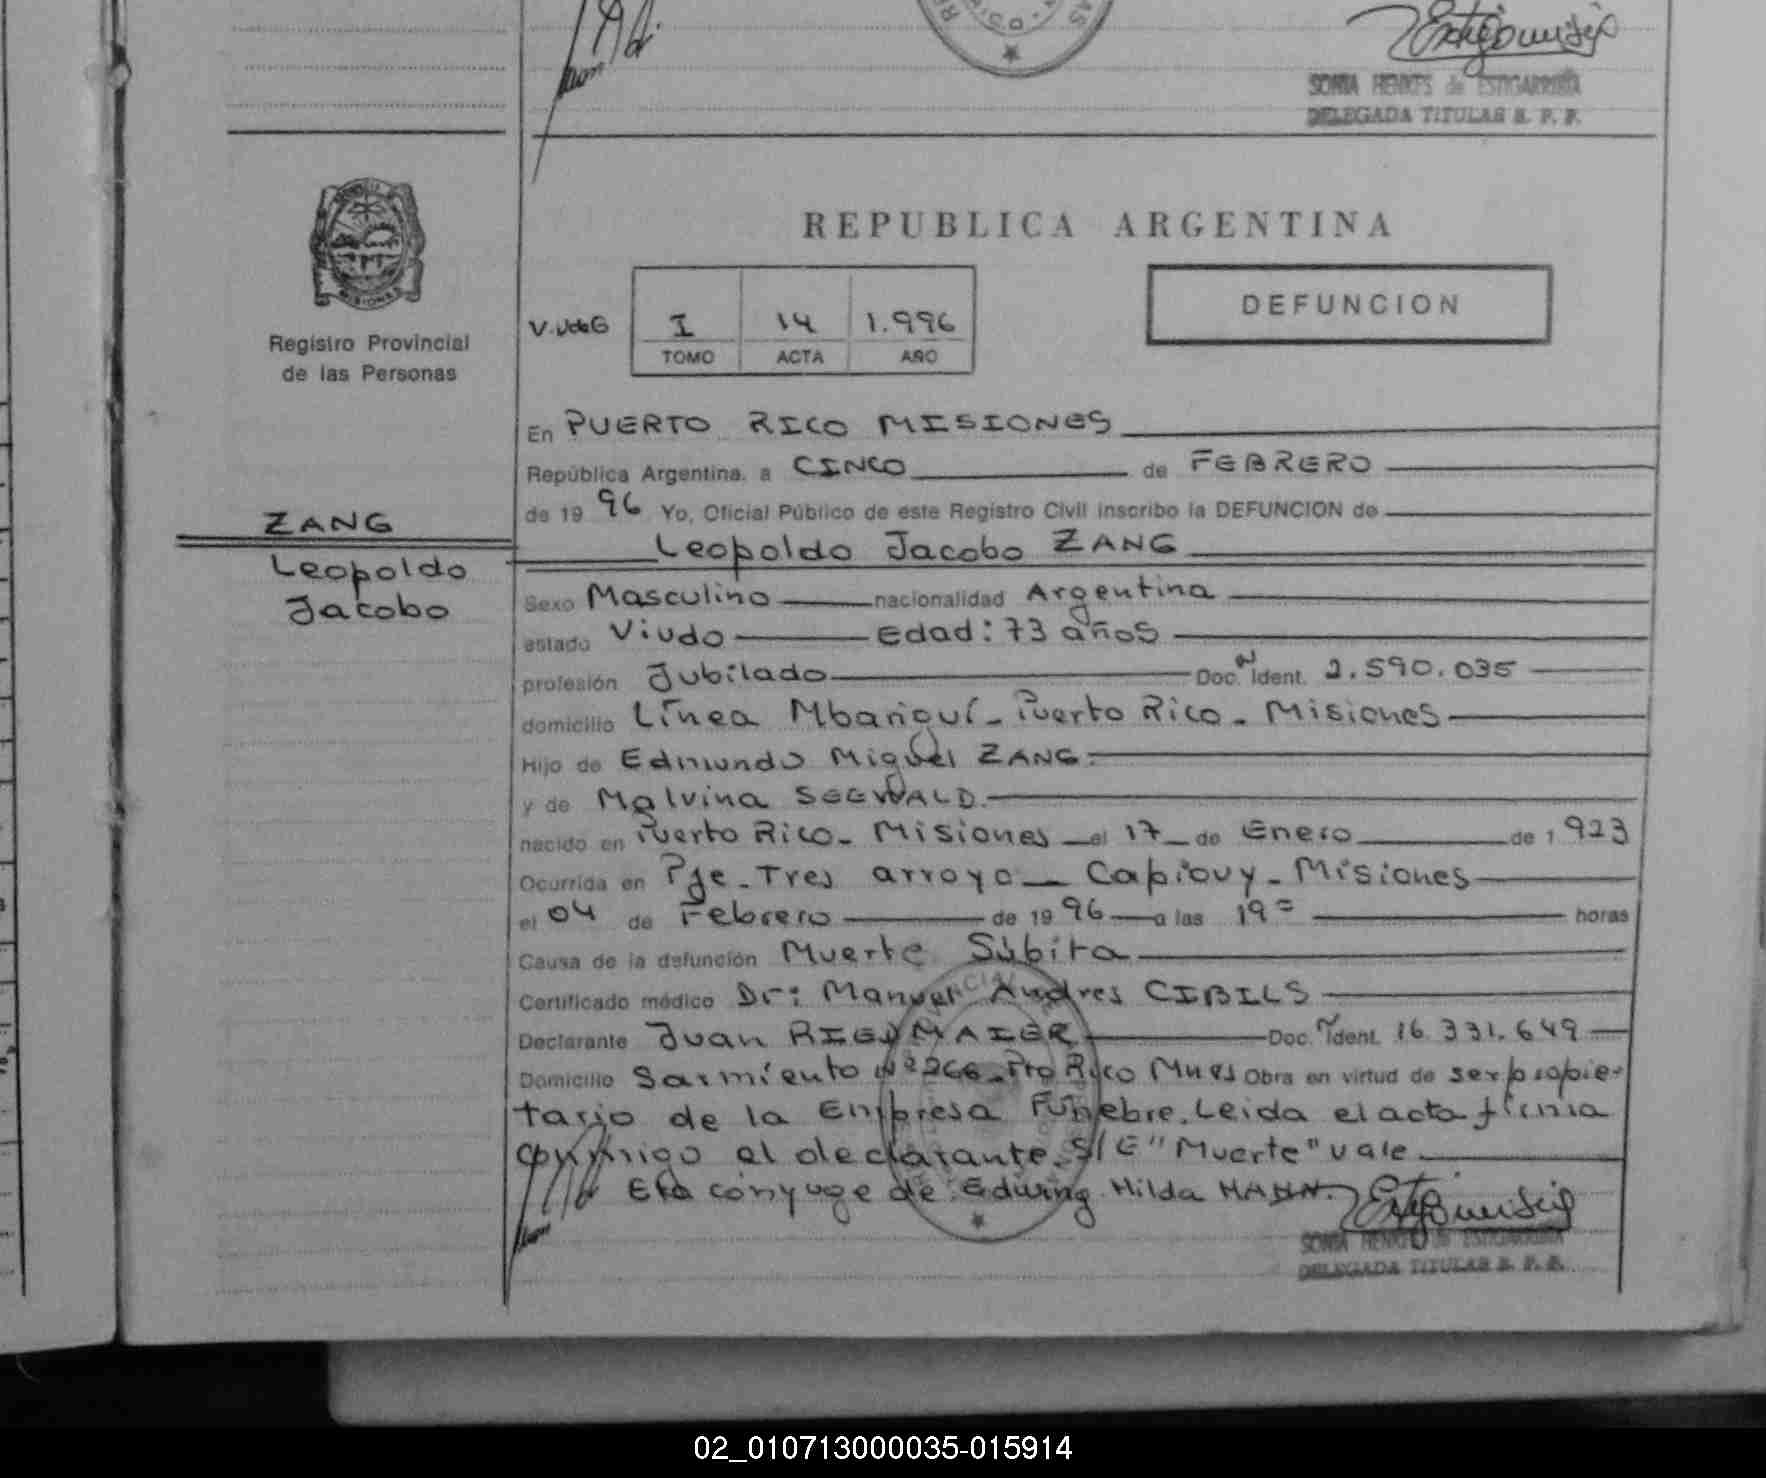 SONIA HENKES de ESTIGARRIBIA
DELEGADA TITULAR R. P. P.
MISIONES
Registro Provincial
de las Personas
ZANG
Leopoldo
Jacobo
REPUBLICA ARGENTINA
DEFUNCION
I 14 1.996
TOMO ACTA AÑO
En PUERTO RICO MISIONES
República Argentina, a CINCO de FEBRERO
de 19 96 Yo, Oficial Público de este Registro Civil inscribo la DEFUNCION de
Leopoldo Jacobo ZANG
Sexo Masculino nacionalidad Argentina
estado Viudo Edad: 73 años
profesión Jubilado Doc. Ident. 2.590.035
domicilio Línea Mbariguí - Puerto Rico - Misiones
Hijo de Edmundo Miguel ZANG.
y de Malvina SEEWALD.
nacido en Puerto Rico - Misiones el 17 de Enero de 1 923
Ocurrida en Pje. Tres arroyo - Capiovy - Misiones
el 04 de Febrero de 19 96 a las 19 horas
Causa de la defunción Muerte Súbita
Certificado médico Dr: Manuel Andres CIBILS
Declarante Juan Doc. Ident. 16.331.649
Domicilio Sarmiento Nº 266 - Pto Rico Mnes Obra en virtud de ser propie-
tario de la Empresa Fúnebre. Leida el acta firma
conmigo el declarante. S/E "Muerte" vale
Era cónyuge de Edwing Hilda HAHN.
SONIA HENKES de ESTIGARRIBIA
DELEGADA TITULAR R. P. P.
02_010713000035-015914